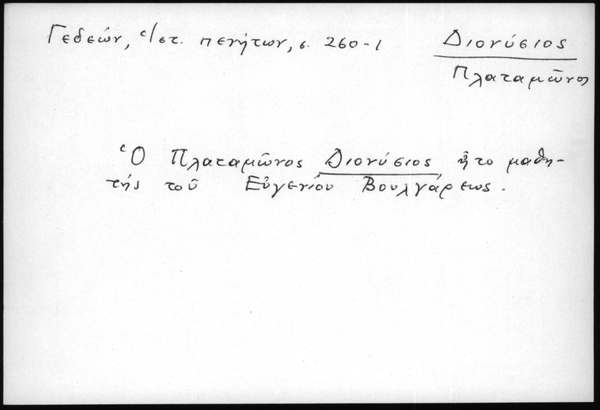 Γεδεών, Ἱστ. πενήτων, σ. 260-1
Διονύσιος
Πλαταμῶνος
Ὁ Πλαταμῶνος Διονύσιος ἦτο μαθη-
τής τοῦ Εὐγενίου Βουλγάρεως.